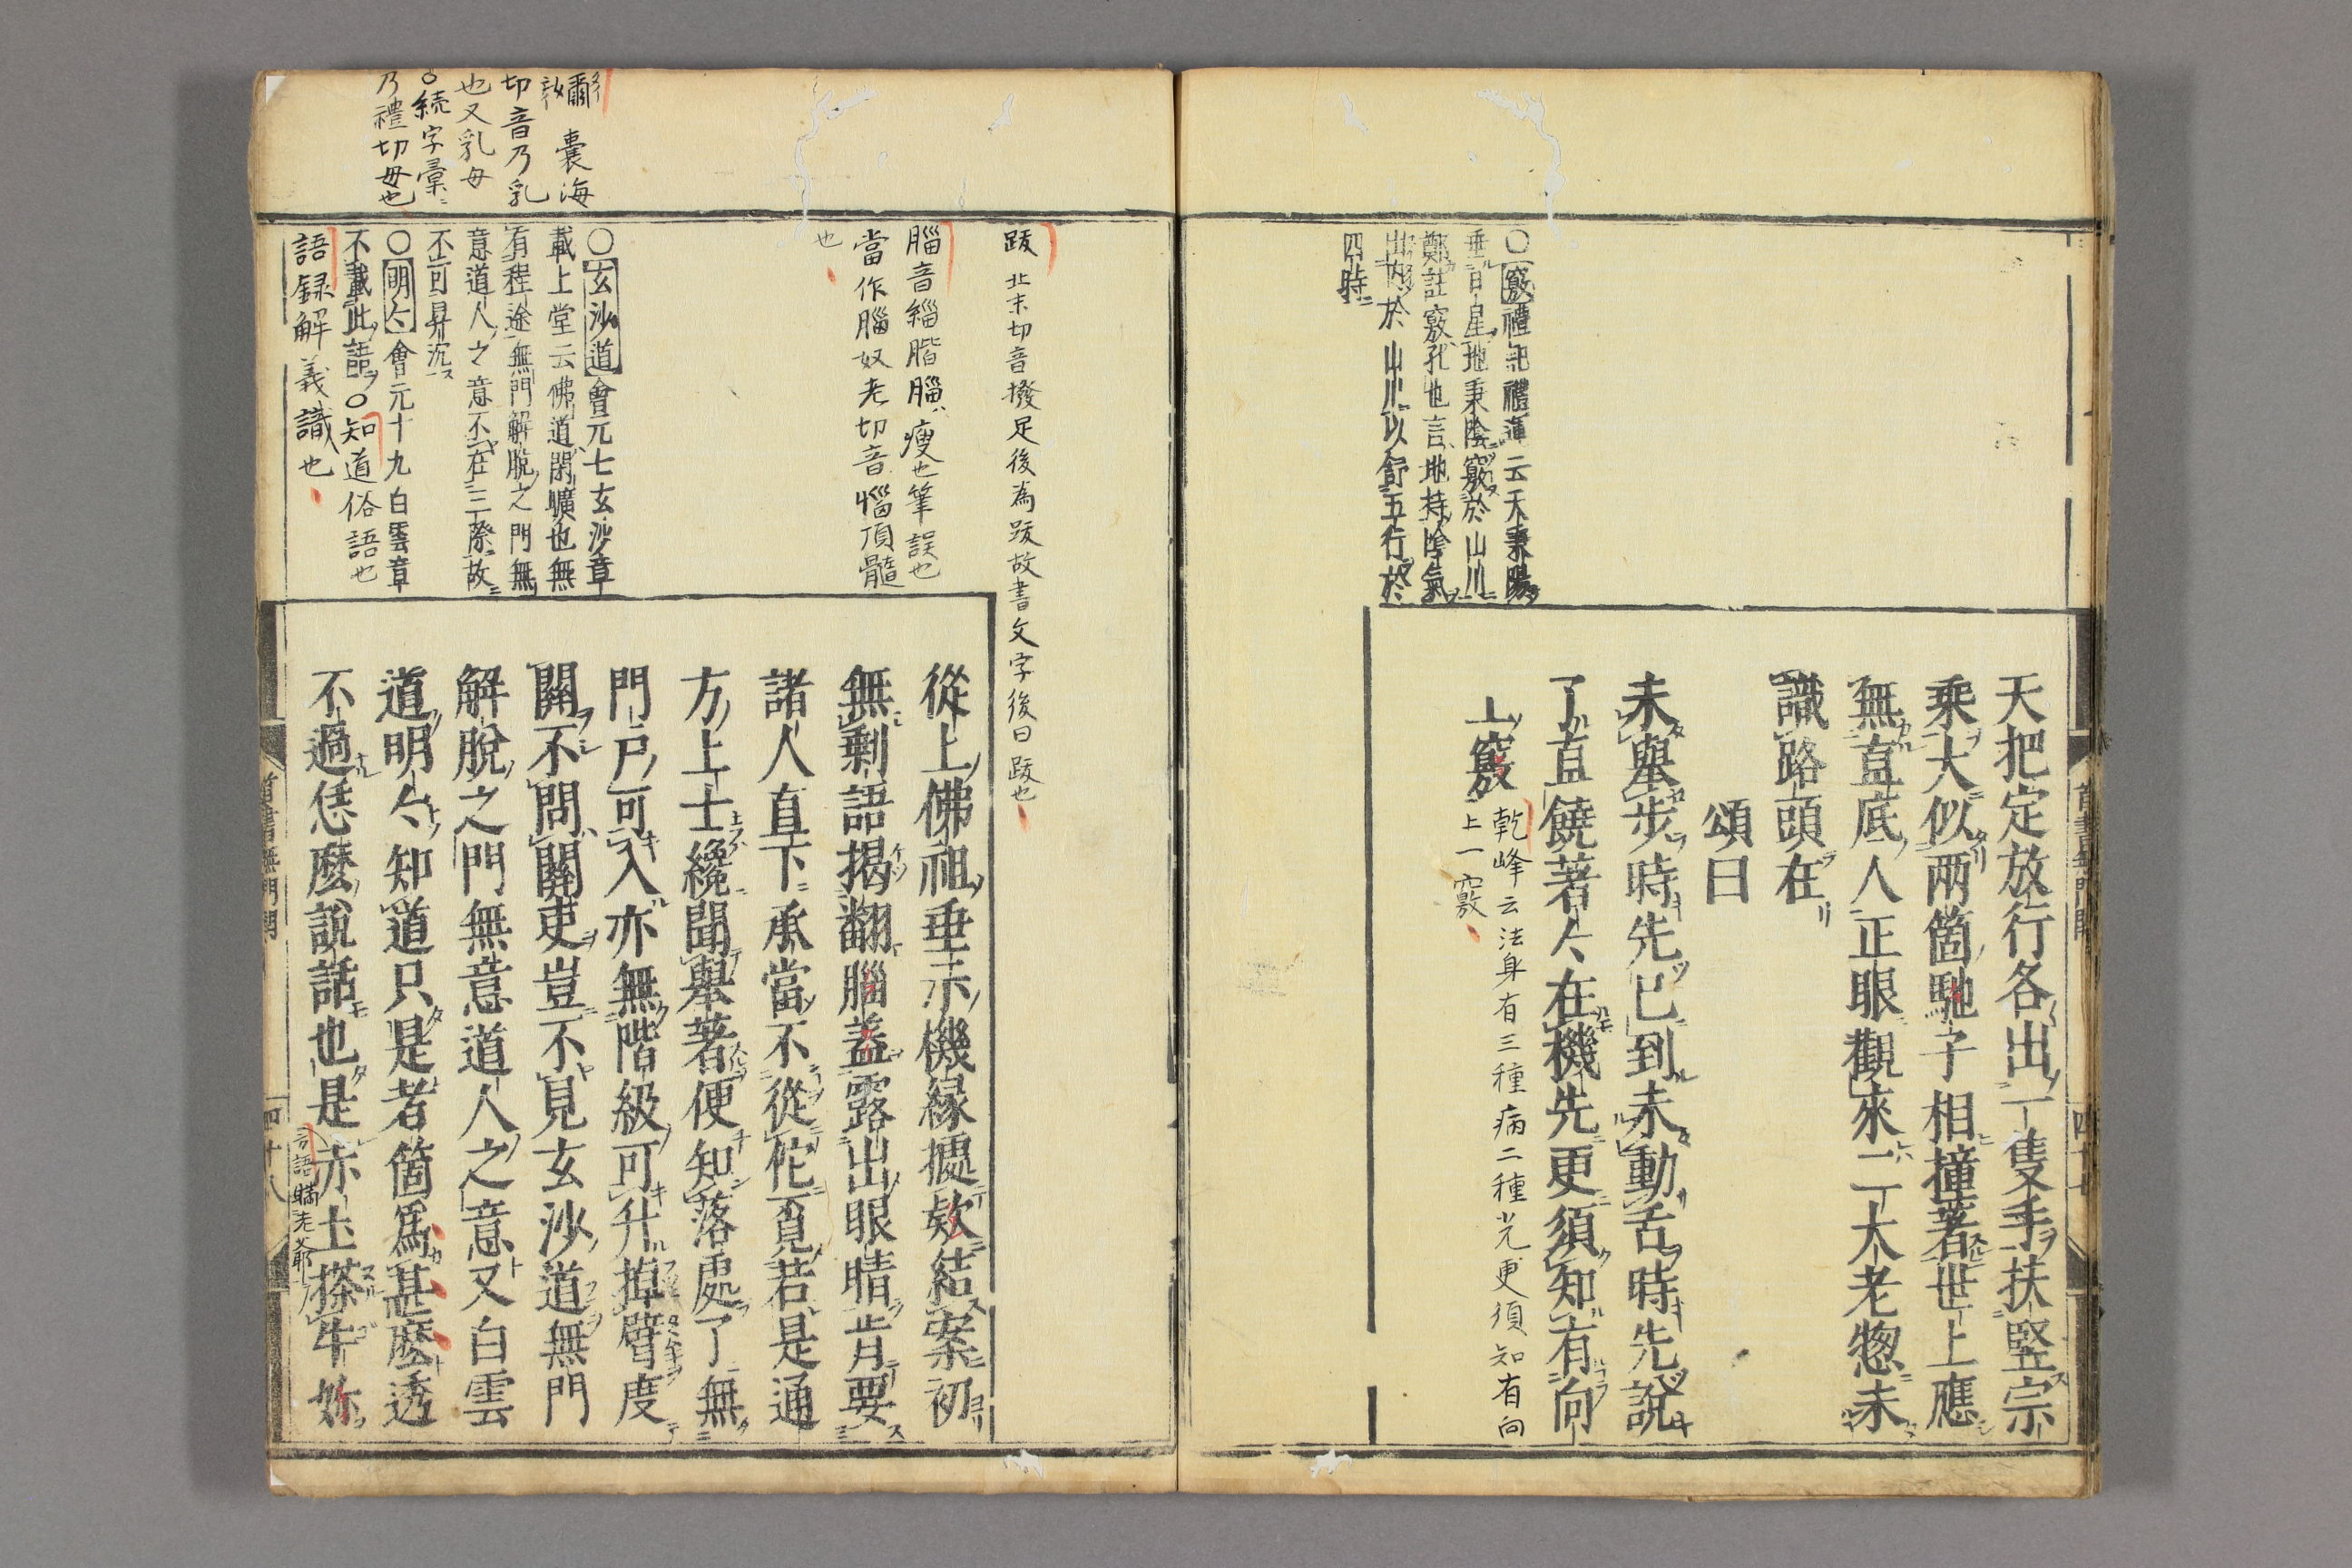 天把定放行各出一隻手扶竪宗
乘大似兩箇馳子相撞著世上應
無直底人正眼觀來二大老惣未
識路頭在
頌曰
未舉步時先已到未動舌時先說
了直饒著〻在機先更須知有向
上竅
乾峰云法身有三種病二種光更須知有向
上一竅
○竅禮記禮運云天秉陽
垂日星地秉陰竅於山川
鄭註竅孔也言地持陰氣
出內於山川以舒五行於
四時
首書無門關
四十七
跋 北末切音撥足後為跋故書文字後曰跋也
腦音緇腊腦瘦也筆誤也
當作腦奴老切音惱頂髓
也
從上佛祖垂示機緣據欵結案初
無剩語揭翻腦蓋露出眼睛肯要
諸人直下承當不從佗覓若是通
方上士纔聞舉著便知落處了無
門戶可入亦無階級可升掉臂度
關不問關吏豈不見玄沙道無門
解脫之門無意道人之意又白雲
道明〻知道只是者箇為甚麼透
不過恁麼說話也是赤土搽牛妳
○玄沙道會元七玄沙章
載上堂云佛道閑曠也無
有程途無門解脫之門無
意道人之意不在三際故
不可昇沉
○明〻會元十九白雲章
不載此語○知道俗語也
語録解義識也
嬭 囊海
切音乃乳
也又乳母
○続字彙
乃禮切母也
首書無門關
四十八